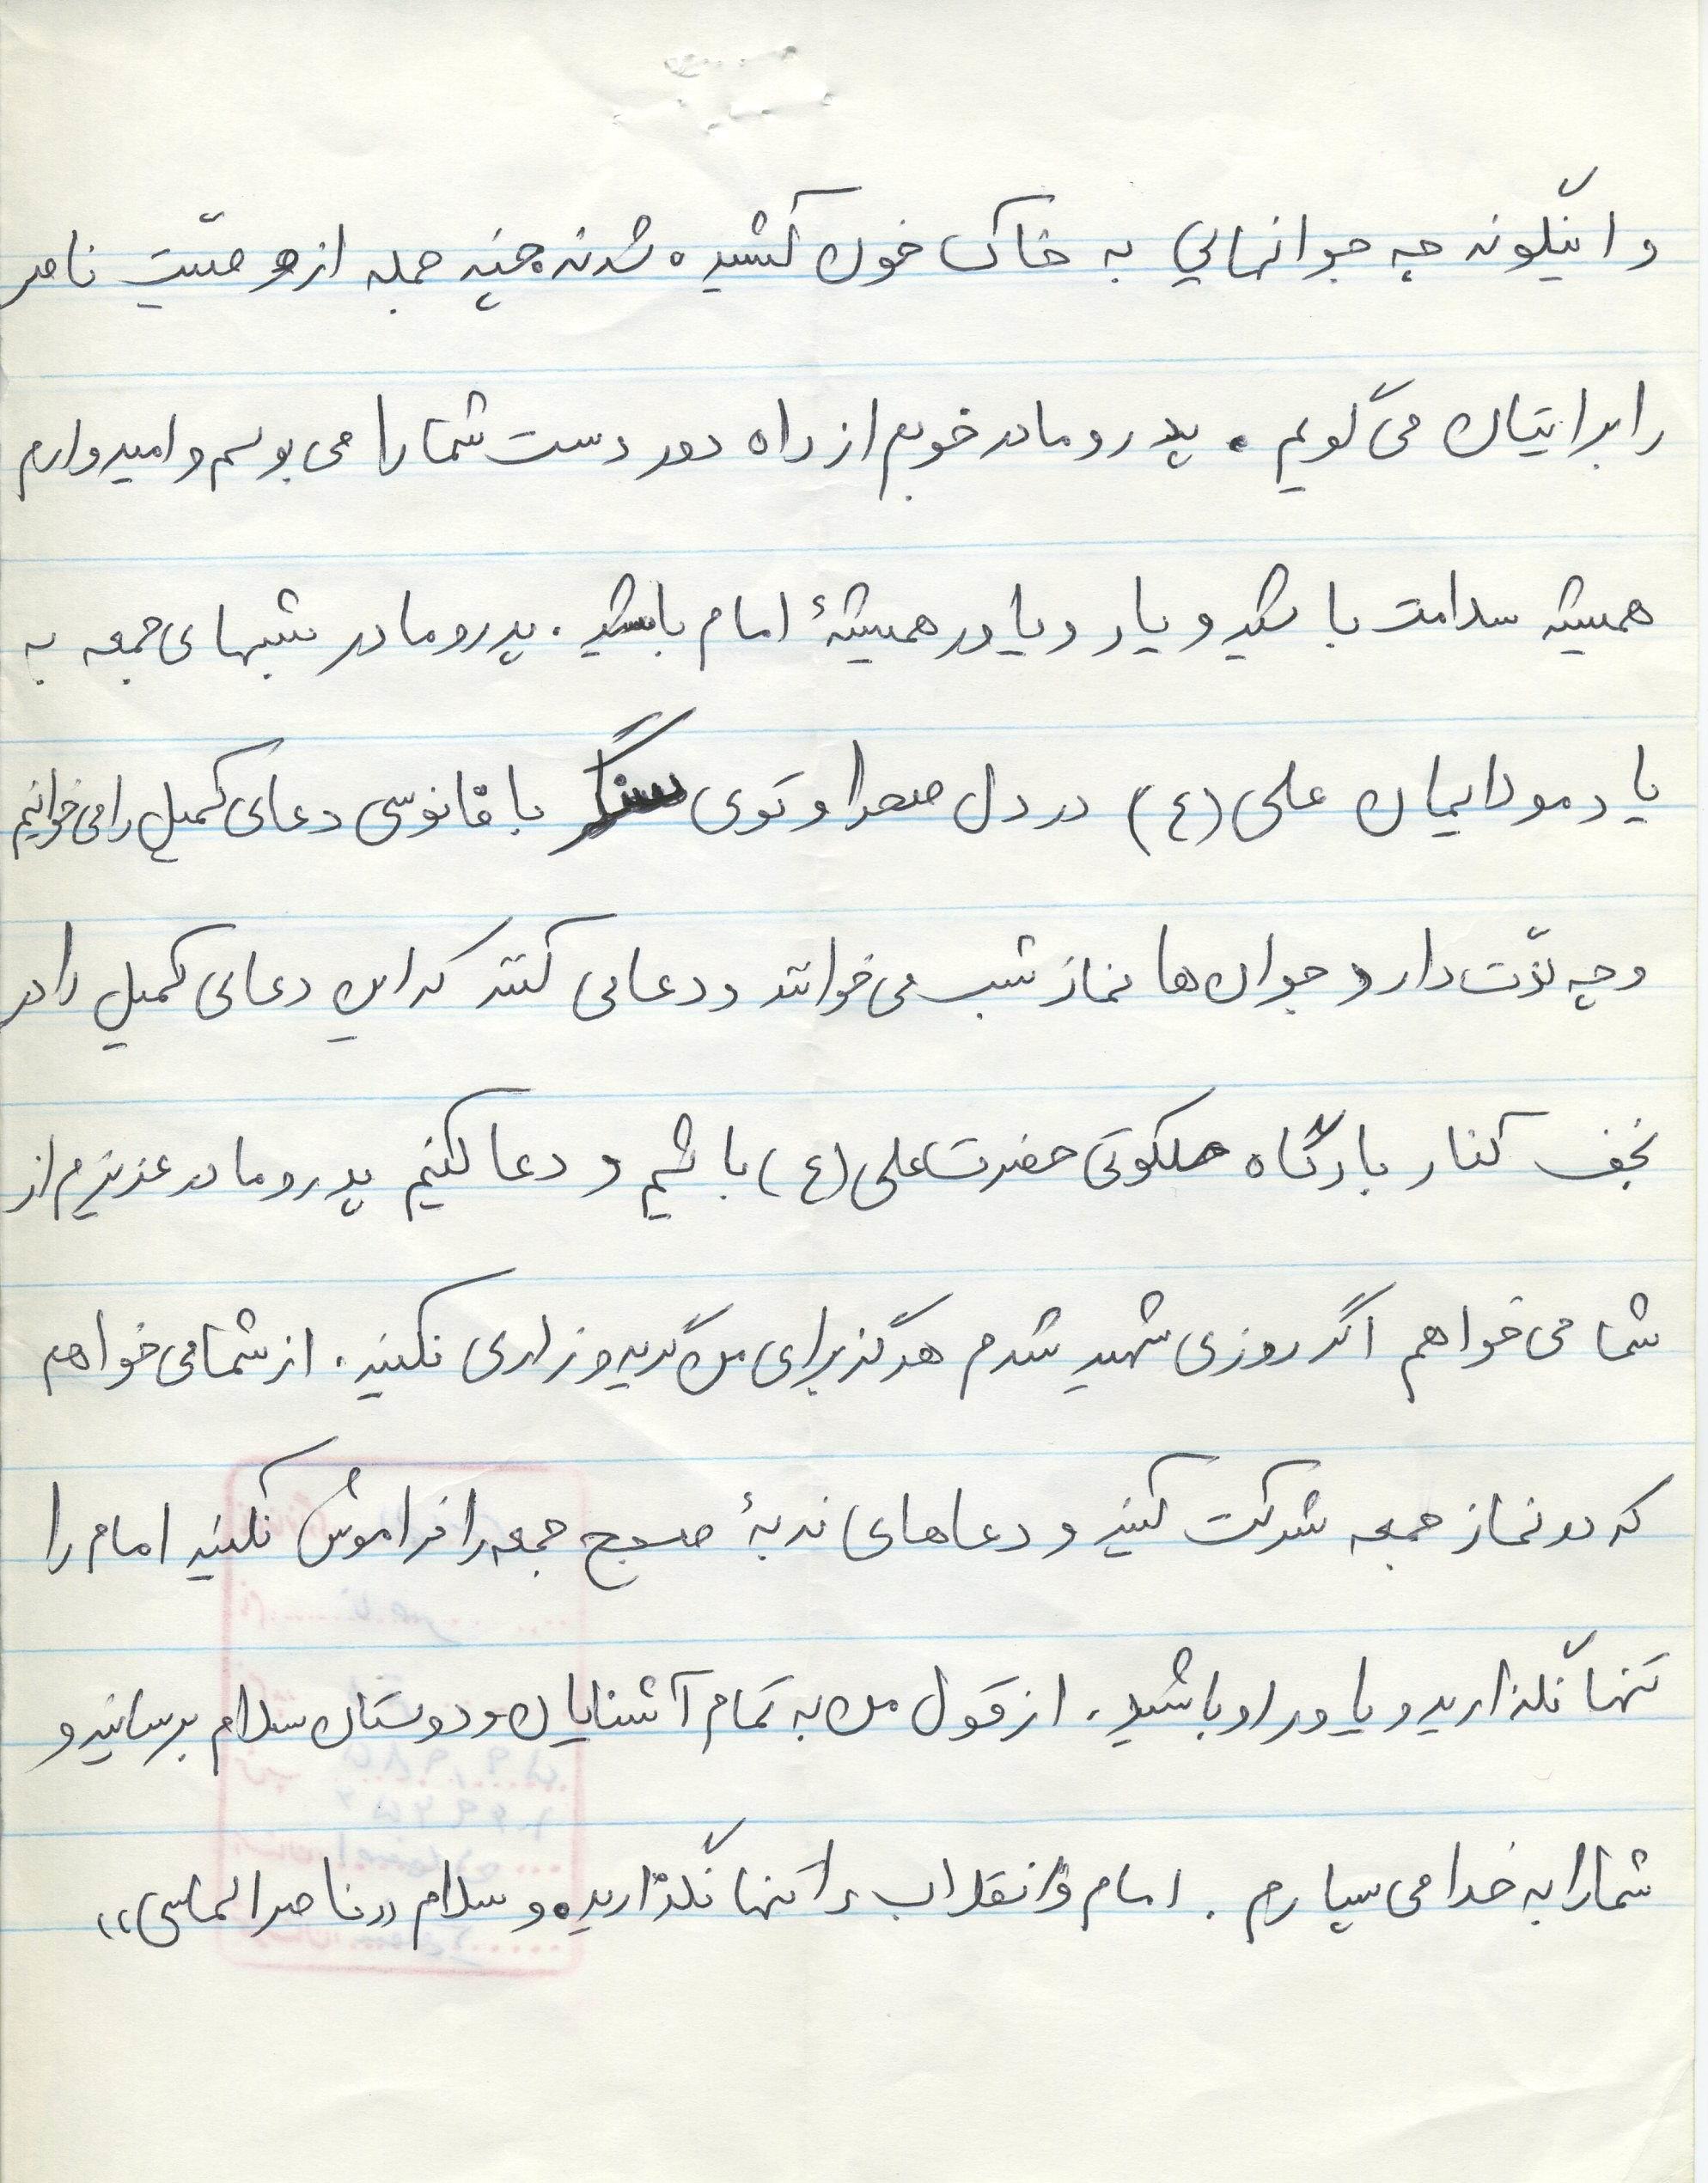 و اینگونه چه جوانهایی به خاک خون کشیده شدند چند جمله از وصیّت ناصر
را برایتان می گویم . پدر و مادر خوبم از راه دور دست شما را می بوسم و امیدوارم
همیشه سلامت باشید و یار و یاور همیشهٔ امام باشید . پدر و مادر شبهای جمعه به
یاد مولایمان علی (ع) در دل صحرا و توی سنگر با فانوسی دعای کمیل را می خوانیم
و چه لذّت دارد جوان ها نماز شب می خوانند و دعا می کنند که این دعای کمیل را در
نجف کنار بارگاه ملکوتی حضرت علی (ع) باشیم و دعا کنیم پدر و مادر عزیزم از
شما می خواهم اگر روزی شهید شدم هرگز برای من گریه و زاری نکنید . از شما می خواهم
که در نماز جمعه شرکت کنید و دعاهای ندبهٔ صبح جمعه را فراموش نکنید امام را
تنها نگذارید و یاور او باشید . از قول من به تمام آشنایان و دوستان سلام برسانید و
شما را به خدا می سپارم . امام و انقلاب را تنها نگذارید . و سلام «ناصر الماسی»